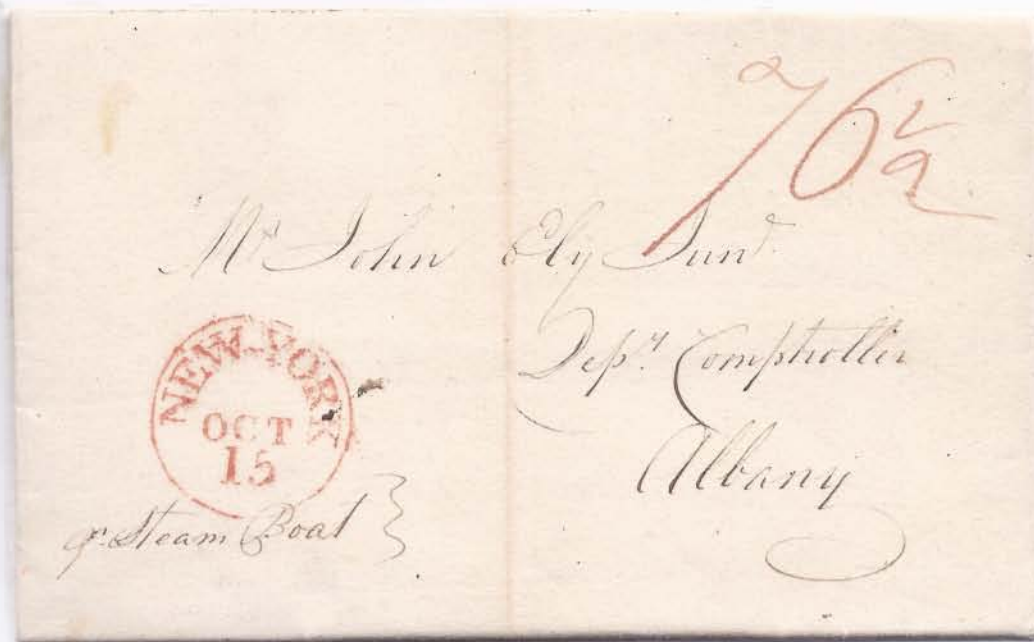 76 1/2
Mr John Ely Junr.
Depy. Comptroller
Albany
NEW-YORK
OCT
15
pr. Steam Boat